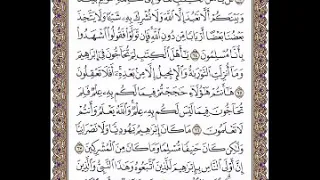 وَبَيْنَكُمْ أَلَّا نَعْبُدَ إِلَّا ٱللَّهَ وَلَا نُشْرِكَ بِهِۦ شَيْـًٔا وَلَا يَتَّخِذَ
بَعْضُنَا بَعْضًا أَرْبَابًا مِّن دُونِ ٱللَّهِ فَإِن تَوَلَّوْا۟ فَقُولُوا۟ ٱشْهَدُوا۟
بِأَنَّا مُسْلِمُونَ ۝ يَـٰٓأَهْلَ ٱلْكِتَـٰبِ لِمَ تُحَآجُّونَ فِىٓ إِبْرَٰهِيمَ
وَمَآ أُنزِلَتِ ٱلتَّوْرَىٰةُ وَٱلْإِنجِيلُ إِلَّا مِنۢ بَعْدِهِۦٓ أَفَلَا تَعْقِلُونَ
۝ هَـٰٓأَنتُمْ هَـٰٓؤُلَآءِ حَـٰجَجْتُمْ فِيمَا لَكُم بِهِۦ عِلْمٌ فَلِمَ
تُحَآجُّونَ فِيمَا لَيْسَ لَكُم بِهِۦ عِلْمٌ وَٱللَّهُ يَعْلَمُ وَأَنتُمْ
لَا تَعْلَمُونَ ۝ مَا كَانَ إِبْرَٰهِيمُ يَهُودِيًّا وَلَا نَصْرَانِيًّا
وَلَـٰكِن كَانَ حَنِيفًا مُّسْلِمًا وَمَا كَانَ مِنَ ٱلْمُشْرِكِينَ ۝
إِنَّ أَوْلَى ٱلنَّاسِ بِإِبْرَٰهِيمَ لَلَّذِينَ ٱتَّبَعُوهُ وَهَـٰذَا ٱلنَّبِىُّ وَٱلَّذِينَ